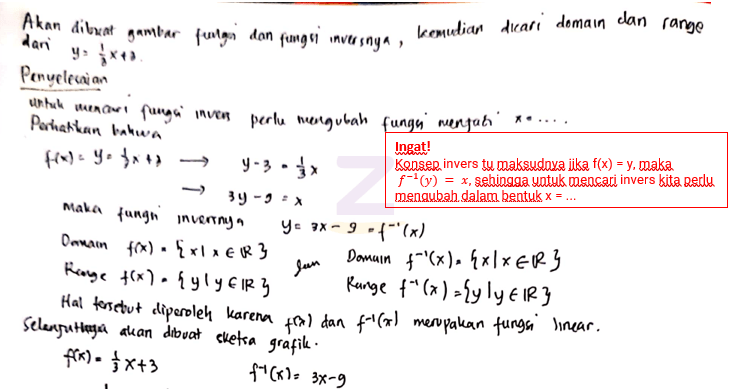 Akan dibuat gambar fungsi dan fungsi inversnya, kemudian dicari domain dan range
dari y = 1/3 x + 3.
Penyelesaian
untuk mencari fungsi invers perlu mengubah fungsi menjadi x = ....
Perhatikan bahwa
f(x) = y = 1/3 x + 3 → y - 3 = 1/3 x
→ 3y - 9 = x
Ingat!
Konsep invers tu maksudnya jika f(x) = y, maka
f⁻¹(y) = x, sehingga untuk mencari invers kita perlu
mengubah dalam bentuk x = ...
maka fungsi inversnya y = 3x - 9 = f⁻¹(x)
Domain f(x) = {x | x ∈ IR} dan Domain f⁻¹(x) = {x | x ∈ IR}
Range f(x) = {y | y ∈ IR} Range f⁻¹(x) = {y | y ∈ IR}
Hal tersebut diperoleh karena f(x) dan f⁻¹(x) merupakan fungsi linear.
Selanjutnya akan dibuat sketsa grafik.
f(x) = 1/3 x + 3 f⁻¹(x) = 3x - 9